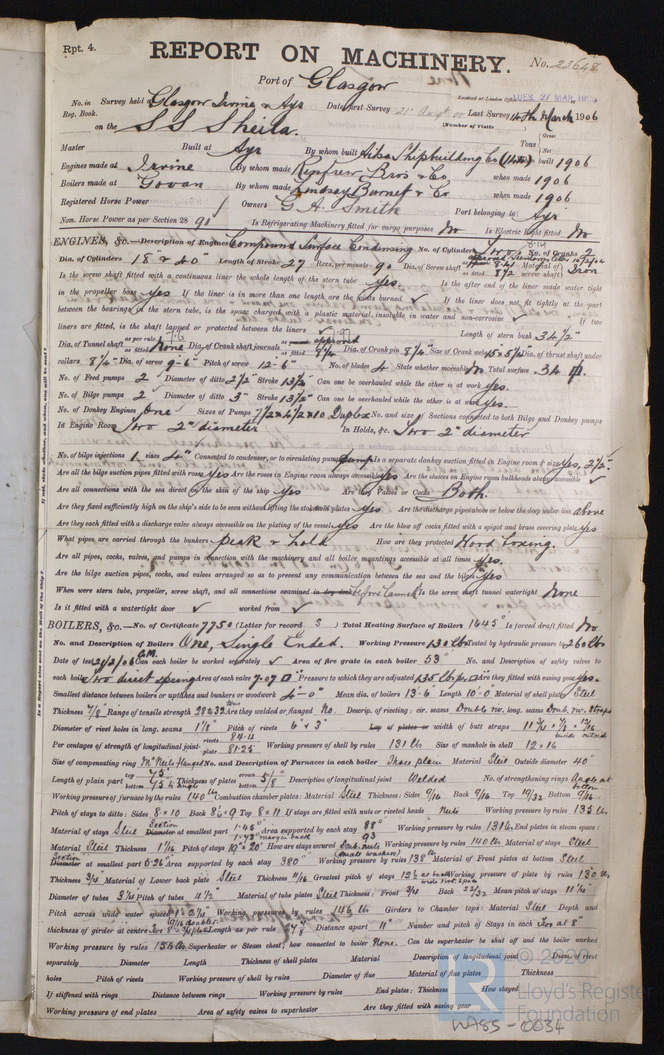 Rpt. 4.
REPORT ON MACHINERY.
No. 22648
Port of Glasgow
Received at London Office TUES. 27 MAR 1906
No. in Reg. Book. Survey held at Glasgow Irvine & Ayr Date, first Survey 21 Augt 05 Last Survey 14th March 1906
(Number of Visits
on the SS Sheila.
Tons Gross Net
Master Built at Ayr By whom built Ailsa Shipbuilding Co When built 1906
Engines made at Irvine By whom made Renfrew Bros & Co when made 1906
Boilers made at Govan By whom made Lindsay Burnet & Co when made 1906
Registered Horse Power Owners G. A. Smith Port belonging to Ayr
Nom. Horse Power as per Section 28 90 Is Refrigerating Machinery fitted for cargo purposes No Is Electric Light fitted No
ENGINES, &c.—Description of Engines Compound Surface Condensing No. of Cylinders Two No. of Cranks 2
Dia. of Cylinders 18" & 40" Length of Stroke 27 Revs. per minute 90 Dia. of Screw shaft as fitted 8 1/2 Material of screw shaft Iron
Is the screw shaft fitted with a continuous liner the whole length of the stern tube yes. Is the after end of the liner made water tight
in the propeller boss yes If the liner is in more than one length are the joints burned ✓ If the liner does not fit tightly at the part
between the bearings in the stern tube, is the space charged with a plastic material insoluble in water and non-corrosive ✓ If two
liners are fitted, is the shaft lapped or protected between the liners ✓ Length of stern bush 34 1/2"
Dia. of Tunnel shaft as per rule 7.6 as fitted None Dia. of Crank shaft journals as per rule 7.97 approved as fitted 8 1/4 Dia. of Crank pin 8 1/4 Size of Crank webs 15 x 5 1/2 Dia. of thrust shaft under
collars 8 1/4" Dia. of screw 9-6" Pitch of screw 12-6" No. of blades 4 State whether moveable No Total surface 34
No. of Feed pumps 2 Diameter of ditto 2 1/2" Stroke 13 1/2" Can one be overhauled while the other is at work yes.
No. of Bilge pumps 2 Diameter of ditto 3" Stroke 13 1/2" Can one be overhauled while the other is at work yes.
No. of Donkey Engines One Sizes of Pumps 7 1/2 x 4 1/2 x 10 Duplex No. and size of Suctions connected to both Bilge and Donkey pumps
In Engine Room Two 2" diameter In Holds, &c. Two 2" diameter
No. of bilge injections 1 sizes 4" Connected to condenser, or to circulating pump pump Is a separate donkey suction fitted in Engine room & size yes, 2 1/2"
Are all the bilge suction pipes fitted with roses yes Are the roses in Engine room always accessible yes Are the sluices on Engine room bulkheads always accessible ✓
Are all connections with the sea direct on the skin of the ship yes Are they Valves or Cocks Both.
Are they fixed sufficiently high on the ship's side to be seen without lifting the stokehold plates yes Are the discharge pipes above or below the deep water line above
Are they each fitted with a discharge valve always accessible on the plating of the vessel yes Are the blow off cocks fitted with a spigot and brass covering plate yes
What pipes are carried through the bunkers peak & hold How are they protected Wood boxing.
Are all pipes, cocks, valves, and pumps in connection with the machinery and all boiler mountings accessible at all times yes.
Are the bilge suction pipes, cocks, and valves arranged so as to prevent any communication between the sea and the bilges yes
When were stern tube, propeller, screw shaft, and all connections examined in dry dock before launch Is the screw shaft tunnel watertight None
Is it fitted with a watertight door ✓ worked from ✓
BOILERS, &c.— No. of Certificate 7750 (Letter for record S) Total Heating Surface of Boilers 1645 Is forced draft fitted No
No. and Description of Boilers One, Single Ended. Working Pressure 130 lbs Tested by hydraulic pressure to 260 lbs
Date of test 20/2/06 Can each boiler be worked separately ✓ Area of fire grate in each boiler 53 No. and Description of safety valves to
each boiler Two direct spring Area of each valve 7.07 Pressure to which they are adjusted 135 lbs Are they fitted with easing gear yes.
Smallest distance between boilers or uptakes and bunkers or woodwork 4'-0" Mean dia. of boilers 13-6 Length 10-0 Material of shell plates Steel
Thickness 7/8 Range of tensile strength 28 to 32 tons Are they welded or flanged No Descrip. of riveting: cir. seams Double riv. long. seams Doub. riv. Straps
Diameter of rivet holes in long. seams 1 1/8" Pitch of rivets 6" & 3" Lap of plates or width of butt straps
Per centages of strength of longitudinal joint rivets 84.4 plate 81.25 Working pressure of shell by rules 131 lbs Size of manhole in shell 12 x 16
Size of compensating ring McNeils flanged No. and Description of Furnaces in each boiler Three plain Material Steel Outside diameter 40"
Length of plain part top 75" bottom Thickness of plates crown bottom 5/8" Description of longitudinal joint Welded No. of strengthening rings Angle at bottom
Working pressure of furnace by the rules 140 lbs Combustion chamber plates: Material Steel Thickness: Sides 9/16 Back 9/16 Top 19/32 Bottom 9/16
Pitch of stays to ditto: Sides 8 x 10 Back 8 1/2 x 9 Top 8 x 11 If stays are fitted with nuts or riveted heads Nuts Working pressure by rules 135 lbs
Material of stays Steel Diameter at smallest part Area supported by each stay 88" Working pressure by rules 131 lbs End plates in steam space:
Material Steel Thickness 1 1/16 Pitch of stays 19" x 20" How are stays secured Doub. nuts Working pressure by rules 140 lbs Material of stays Steel
Diameter at smallest part 5.26 Area supported by each stay 380" Working pressure by rules 138 lb Material of Front plates at bottom Steel
Thickness 3/4" Material of Lower back plate Steel Thickness Greatest pitch of stays Working pressure of plate by rules 130 lbs
Diameter of tubes 3 1/4 Pitch of tubes 4 1/2 Material of tube plates Steel Thickness: Front 3/4 Back 22/32 Mean pitch of stays
Pitch across wide water spaces Working pressures by rules 146 lb Girders to Chamber tops: Material Steel Depth and
thickness of girder at centre Length as per rule 27 Distance apart 11" Number and pitch of Stays in each Two at 8"
Working pressure by rules 156 lb Superheater or Steam chest; how connected to boiler None. Can the superheater be shut off and the boiler worked
separately Diameter Length Thickness of shell plates Material Description of longitudinal joint Diam. of rivet
holes Pitch of rivets Working pressure of shell by rules Diameter of flue Material of flue plates Thickness
If stiffened with rings Distance between rings Working pressure by rules End plates: Thickness How stayed
Working pressure of end plates Area of safety valves to superheater Are they fitted with easing gear
© 2020
Lloyd's Register
Foundation
WASS-0034